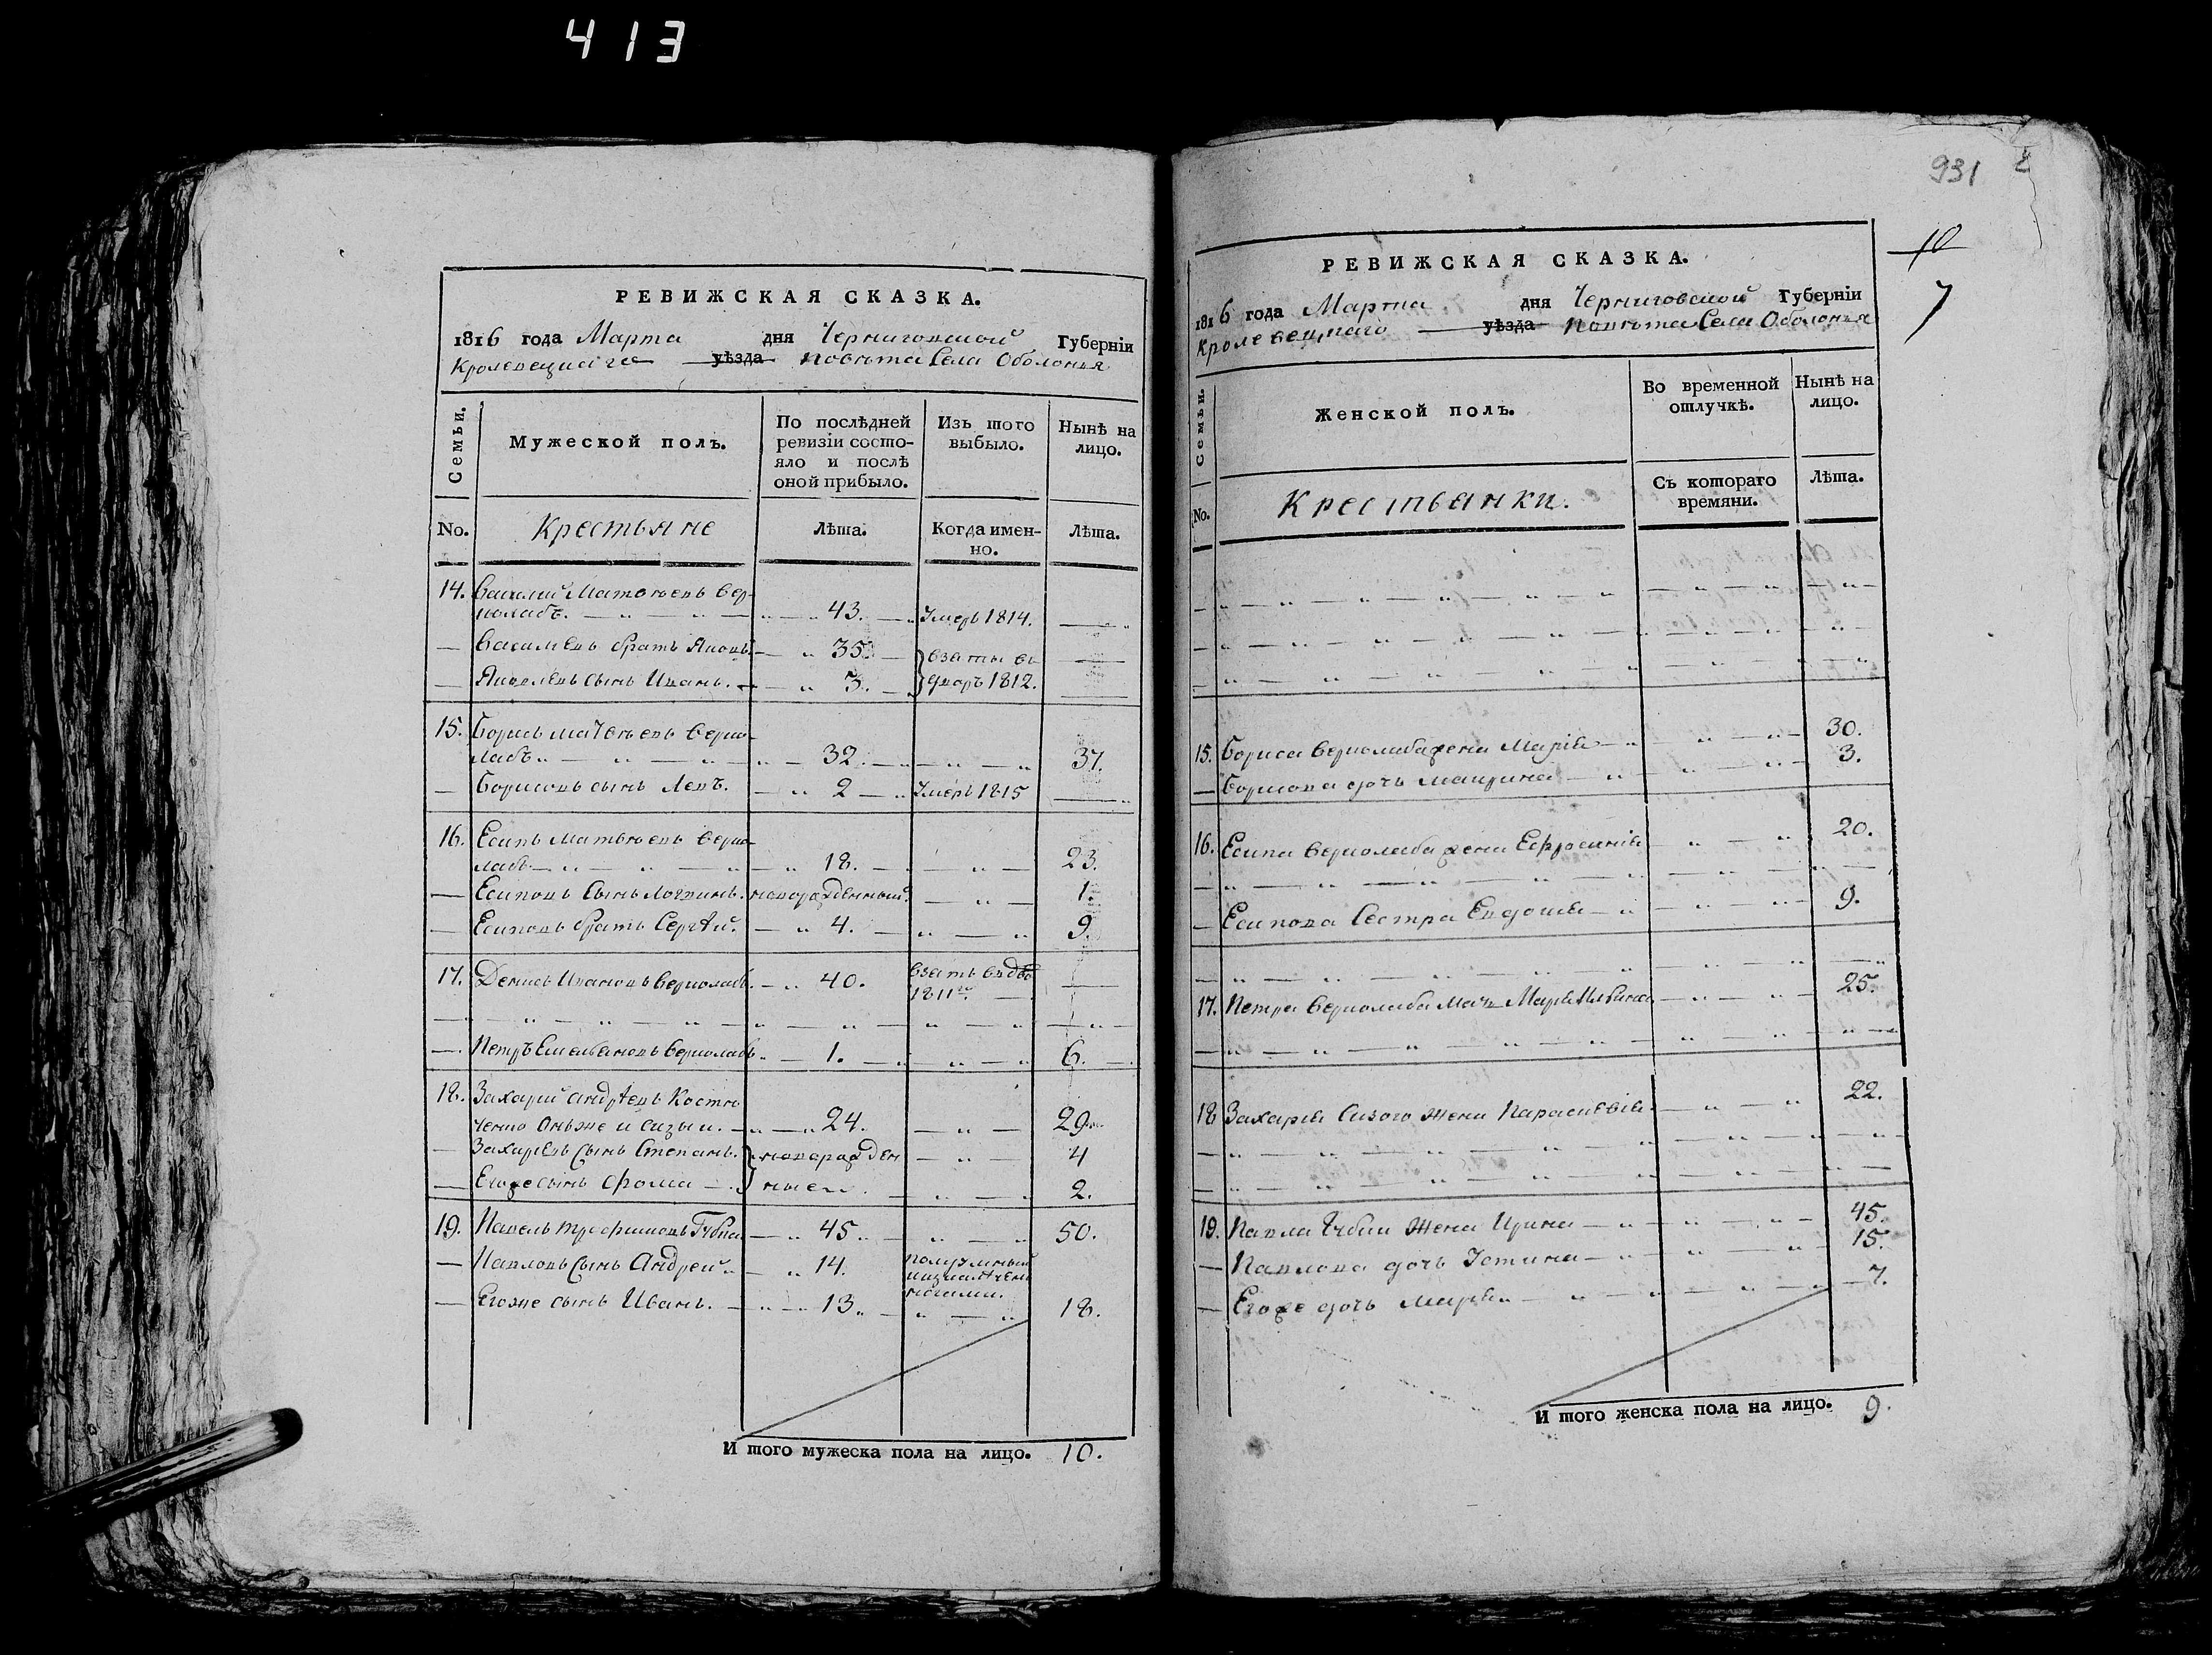 413
РЕВИЖСКАЯ СКАЗКА.
1816 года Марта дня Черниговской Губерніи
Кролевецкаго уѣзда повѣта Села Оболонья
Семьи.
Мужеской полъ.
По послѣдней ревизіи состо-
яло и послѣ
оной прибыло.
Изъ того
выбыло.
Нынѣ на
лицо.
No.
Крестьяне
Лѣта.
Когда имен-
но.
Лѣта.
14. Василий Матвѣевъ Вер-
43. Умеръ 1814.
— Васильевъ братъ Яковъ. 35. взяты въ
— Яковлевъ сынъ Иванъ. 3. дворъ 1812.
15. Борисъ Матвѣевъ
32. 37.
— Борисовъ сынъ Левъ. 2 Умеръ 1815
16. Есипъ Матвѣевъ
18. 23.
— Есиповъ Сынъ Логвинъ. новорожденный. 1.
— Есиповъ братъ Сергѣй. 4. 9.
17. Денисъ Ивановъ 40. взятъ въ
1811го
— Петръ Емельяновъ 1. 6.
18. Захарий Андрѣевъ Костю
ченко Онъже и Сизый. 24. 29.
— Захаріевъ Сынъ Степанъ. новорожден 4
— Егоже сынъ Фома ные 2.
19. Павелъ Трофимовъ Губка 45. 50.
— Павловъ Сынъ Андрей 14. полуумный
— Егоже сынъ Иванъ. 13. 18.
И того мужеска пола на лицо. 10.
931
10
7
РЕВИЖСКАЯ СКАЗКА.
1816 года Марта дня Черниговской Губерніи
Кролевецкаго уѣзда повѣта Села Оболонья
Семьи.
Женской полъ.
Во временной
отлучкѣ.
Нынѣ на
лицо.
No.
Крестьянки.
Съ котораго
времяни.
Лѣта.
15. Бориса жена Марія 30.
— Борисова дочь 3.
16. Есипа жена Ефросинія 20.
— Есипова Сестра Евдокія 9.
17. Петра Мать Марія 25.
18 Захарія Сизого жена Парасковія 22.
19. Павла Губки Жена Ирина 45.
— Павлова дочь Устина 15.
— Егоже дочь Марія 7.
И того женска пола на лицо. 9.